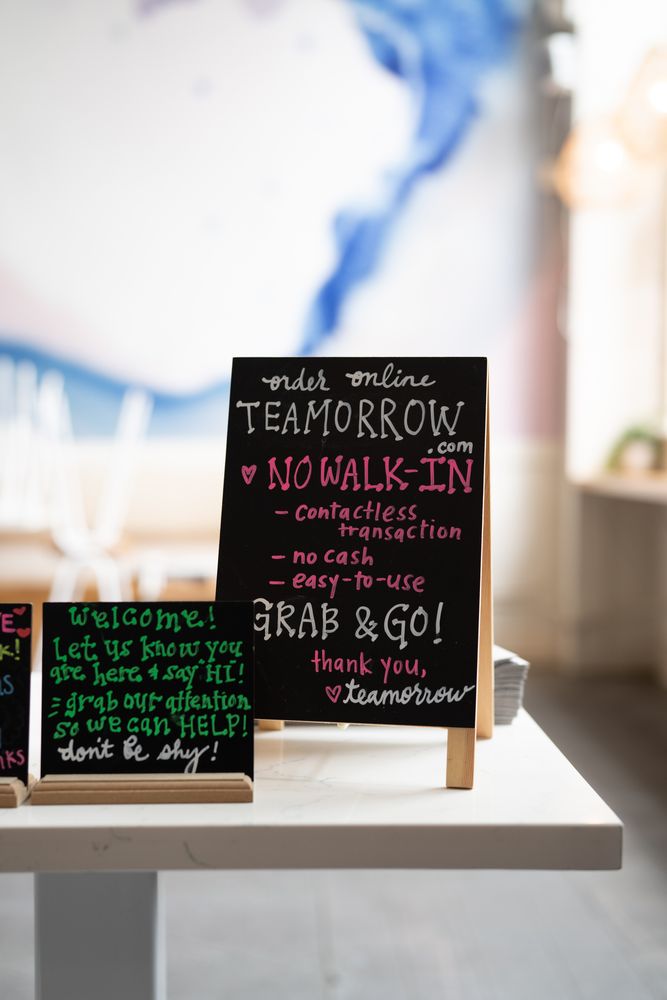 order online
TEAMORROW
.com
♥ NO WALK-IN
- contactless
transaction
- no cash
- easy-to-use
GRAB & GO!
thank you,
♥ teamorrow
welcome!
Let us know you
are here & say "HI!
grab our attention
so we can HELP!
don't be shy!